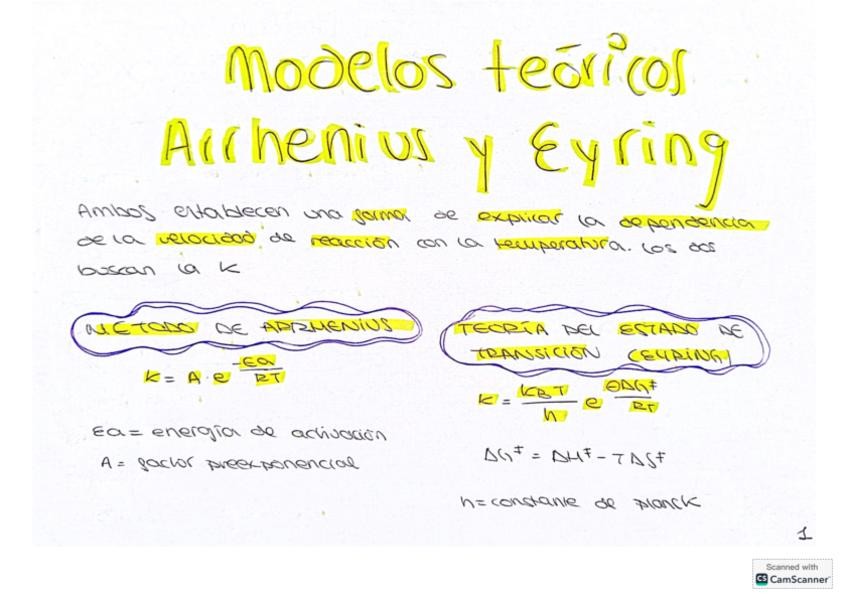 Modelos teóricos
Arrhenius y Eyring
Ambos establecen una forma de explicar la dependencia
de la velocidad de reacción con la temperatura. Los dos
buscan la K
MÉTODO DE ARRHENIUS
k = A · e^(-Ea/RT)
Ea = energía de activación
A = factor preexponencial
TEORÍA DEL ESTADO DE
TRANSICIÓN (EYRING)
k = (KBT/h) e^(-ΔG‡/RT)
ΔG‡ = ΔH‡ - TΔS‡
h = constante de planck
1
Scanned with
CS CamScanner